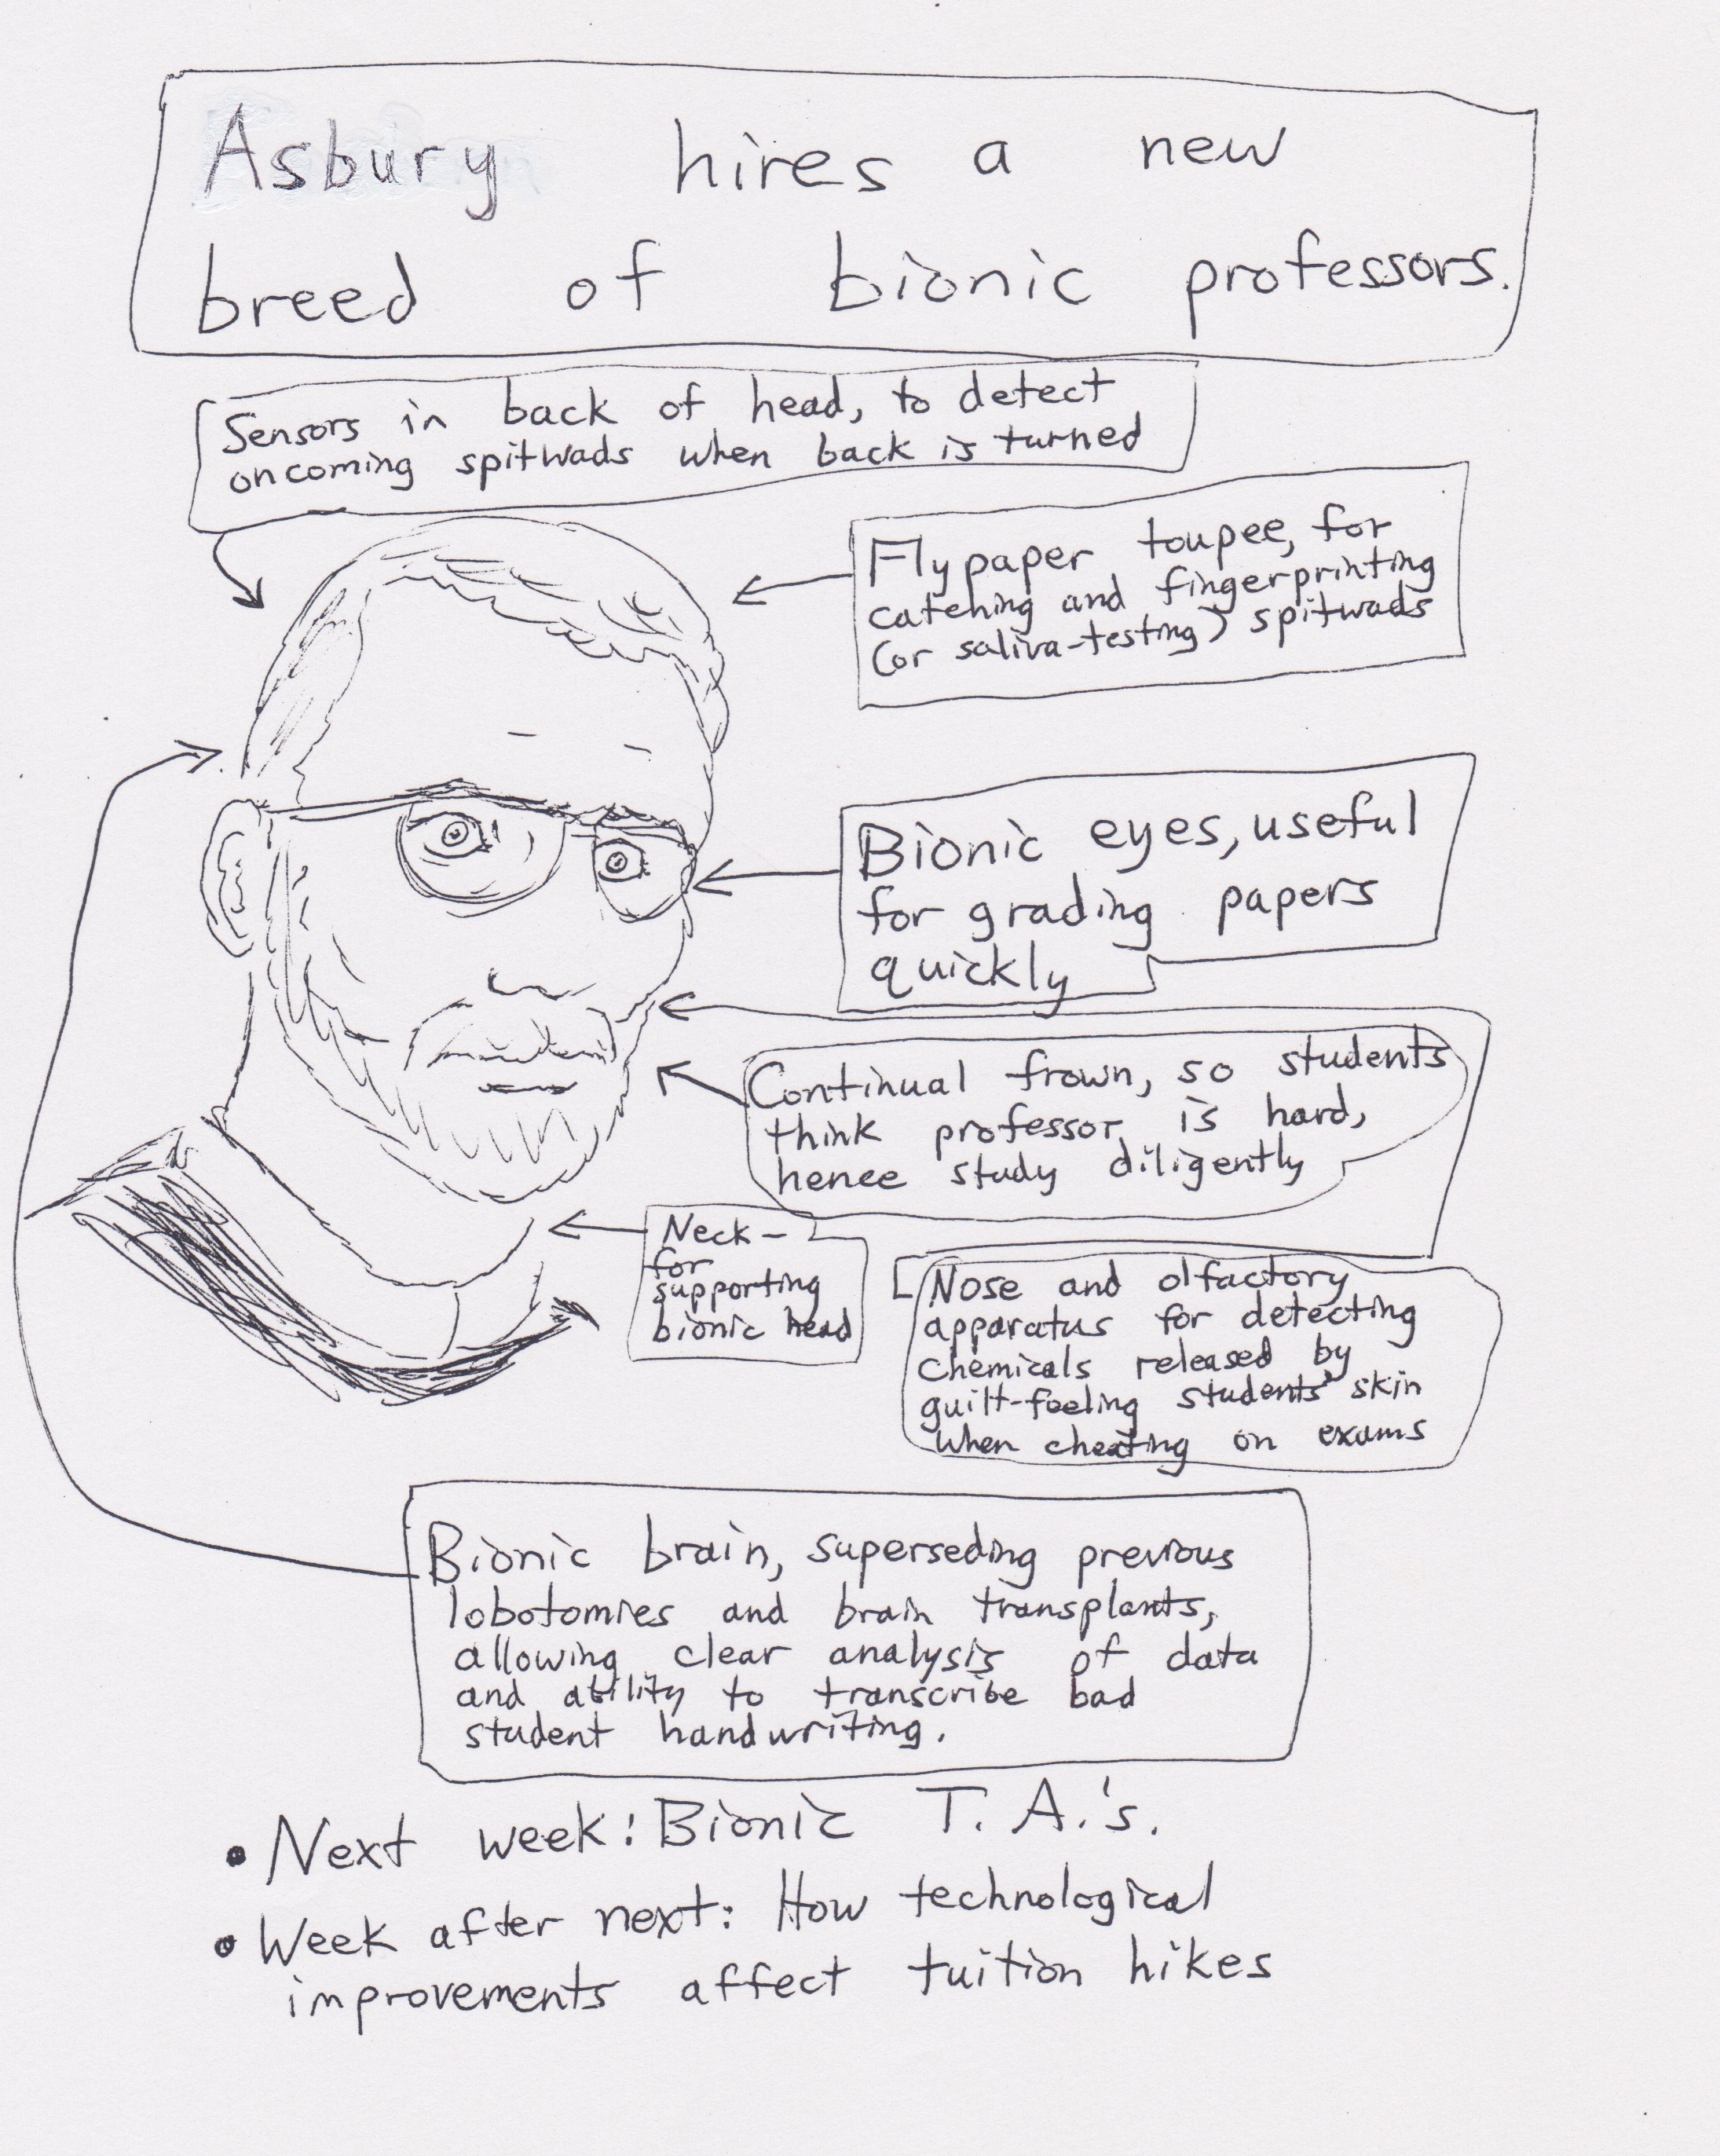 Asbury hires a new
breed of bionic professors.
Sensors in back of head, to detect
oncoming spitwads when back is turned
Flypaper toupee, for
catching and fingerprinting
(or saliva-testing) spitwads
Bionic eyes, useful
for grading papers
quickly
Continual frown, so students
think professor is hard,
hence study diligently
Neck-
for
supporting
bionic head
Nose and olfactory
apparatus for detecting
chemicals released by
guilt-feeling students' skin
when cheating on exams
Bionic brain, superseding previous
lobotomies and brain transplants,
allowing clear analysis of data
and ability to transcribe bad
student handwriting.
• Next week: Bionic T. A.'s.
• Week after next: How technological
improvements affect tuition hikes